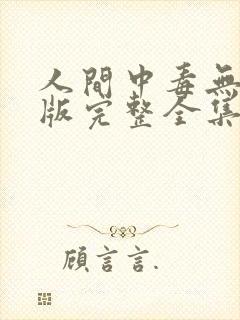 人間中毒無
版完整全集
顧言言.